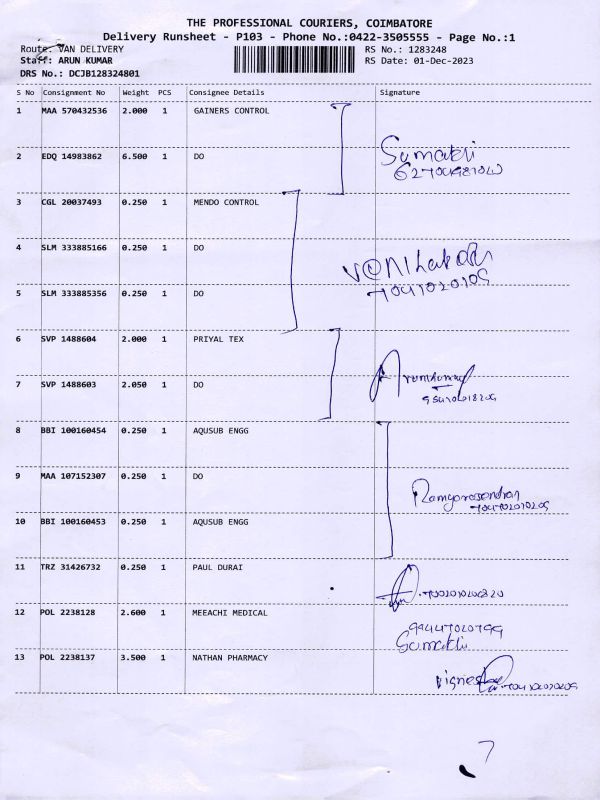 THE PROFESSIONAL COURIERS, COIMBATORE
Delivery Runsheet - P103 - Phone No.:0422-3505555 - Page No.:1
Route: VAN DELIVERY RS No.: 1283248
Staff: ARUN KUMAR RS Date: 01-Dec-2023
DRS No.: DCJB128324801
S No Consignment No Weight PCS Consignee Details Signature
1 MAA 570432536 2.000 1 GAINERS CONTROL
2 EDQ 14983862 6.500 1 DO
3 CGL 20037493 0.250 1 MENDO CONTROL
4 SLM 333885166 0.250 1 DO
5 SLM 333885356 0.250 1 DO
6 SVP 1488604 2.000 1 PRIYAL TEX
7 SVP 1488603 2.050 1 DO
8 BBI 100160454 0.250 1 AQUSUB ENGG
9 MAA 107152307 0.250 1 DO
10 BBI 100160453 0.250 1 AQUSUB ENGG
11 TRZ 31426732 0.250 1 PAUL DURAI
12 POL 2238128 2.600 1 MEEACHI MEDICAL
13 POL 2238137 3.500 1 NATHAN PHARMACY
7